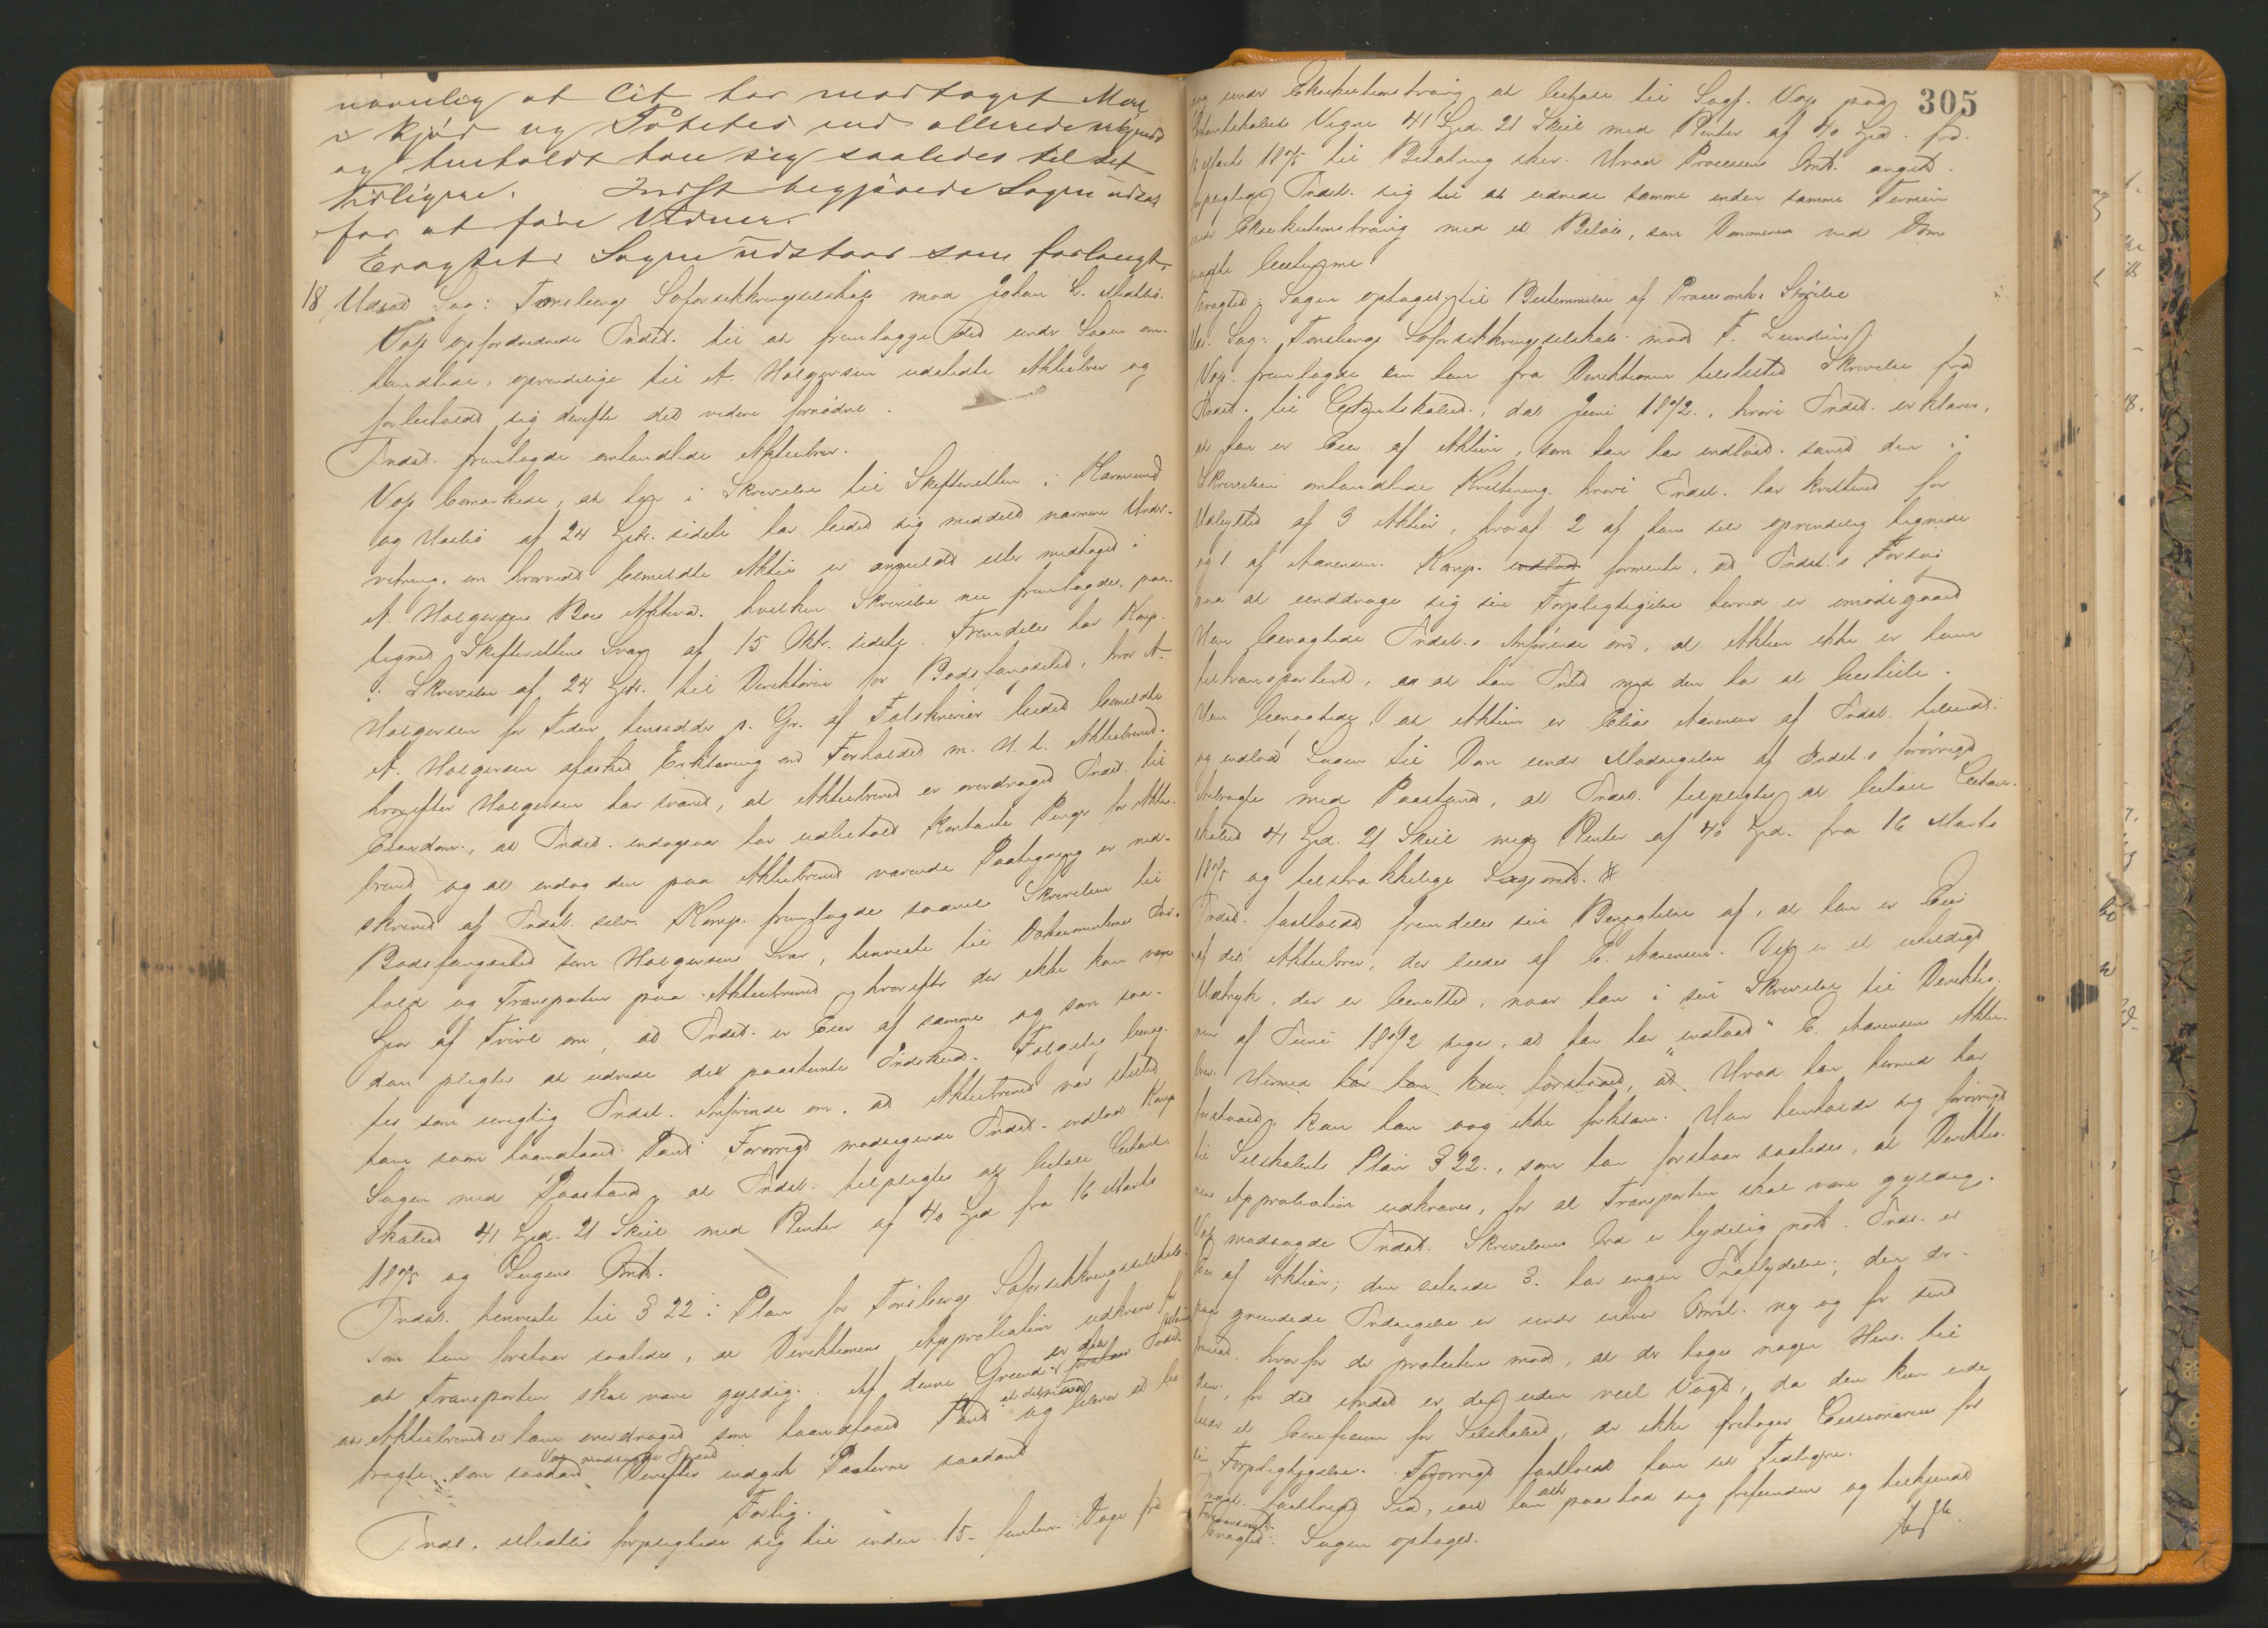 navnlig at Cit har modtaget Mere
i kjød og Poteter end allerede
og henholdt han sig saaledes til det
tidligere. Indst begjærede Sagen udsat
for at føre Vidner.
Eragtet: Sagen udstaar som forlangt.
18 Udsat Sag: Tønsbergs Søforsikkringsselskab mod Johan L. Mathis.
Vog opfordredede Indst. til at fremlægge det under Sagen om-
handlede, oprindelige til A. Holgersen udstedte Aktiebrev og
forbeholdt sig derefter det videre fornødne.
Indst. fremlagde omhandlede Aktiebrev.
Vog bemærkede, at han i Skrivelse til Skifteretten i Karmsund
og af 24 Sptr. sidste har bedet sig meddelt nærmere Under-
retning, om hvorvidt bemeldte Aktie er anmeldt eller medtaget i
A. Holgersens Boes Aktiva. hvilken Skrivelse nu fremlagdes. paa-
tegnet Skifterettens Svar af 15 Oktr. sidste. Fremdeles har Komp.
i Skrivelse af 24 Sptr. til Direktøren for Bodsfængselet, hvor A.
Holgersen for Tiden hensidder p. Gr. af Falskneri bedet bemeldte
A. Holgersen afæsket Erklæring om Forholdet m. H. t. Aktiebrevet.
hvorefter Holgersen har svaret, at Aktiebrevet er overdraget Indst. til
Eiendom, at Indst. endogsaa har udbetalt kontante Penge for Aktie-
brevet og at endog den paa Aktiebrevet værende Paategning er ned-
skrevet af Indst. selv. Komp. fremlagde saavel Skrivelsen til
Bodsfængselet som Holgersens Svar, henviste til Dokumenternes Ind-
hold og Transporten paa Aktiebrevet, hvorefter der ikke kan være
Spor af Tvivl om, at Indst. er Eier af samme og som saa-
dan pligter at udrede det paastevnte Indskud. Følgelig benæg-
tes som urigtig Indst. Anførende om, at Aktiebrevet var stillet
ham som haandfaaet Pant. Forøvrigt modsigende Indst. indlod Komp
Sagen med Paastand, at Indst. tilpligtes at betale Citant-
skabet 41 Spd. 21 Skill med Renter af 40 Spd fra 16 Marts
1875 og Sagens Omk.
Indst. henviste til § 22 i Plan for Tønsbergs Søforsikkringsselskab
som han forstaar saaledes, at Direktionens Approbation udkræves for
at Transporten skal være gyldig. Af denne Grund er det
at Aktiebrevet er ham overdraget som haandfaaet Pant og
tragte som saadant Vog modsagde Indst Derefter indgik Parterne saadant
Forlig.
Indst. Mathis forpligtede sig til inden 15 - femten - Dage fra
305
dog under Eksekutionstvang at betale til Sagf. Vog paa
Citantskabets Vegne 41 Spd. 21 Skill med Renter af 40 Spd. fra
16 Marts 1875 til Betaling sker. Hvad Processens Omk. angaar
forpligtede Indst. sig til at udrede samme inden samme Termin
under Eksekutionstvang med et Beløb, som Dommeren ved Dom
maatte bestemme.
Eragtet: Sagen optages til Bestemmelse af Procesomk.s Størrelse
Uds. Sag: Tønsbergs Søforsikkringsselskab mod F. Lundin
Vog. fremlagde en ham fra Direktionen tilstillet Skrivelse fra
Indst. til Citantskabet, dat Juni 1872., hvori Indst. erklærer,
at han er Eier af Aktien, som han har indløst. samt den i
Skrivelsen omhandlede Kvittering. hvori Indst. har kvitteret for
Udbyttet af 3 Aktier, hvoraf 2 af ham selv oprindelig tegnede
og 1 af Aanensen. Komp. formente, at Indst.s Forsøg
paa at unddrage sig sin Forpligtigelse herved er imødegaaet
Han benægtede Indst.s Anførende om, at Aktien ikke er ham
tiltransporteret, at han Intet med den har at bestille.
Han benægtede, at Aktien er Elias Aanensen af Indst. tilsendt:
og indlod Sagen til Dom under Modsigelse af Indst.s forøvrigt
Anbragte med Paastand, at Indst. tilpligtes at betale Citant-
skabet 41 Spd. 21 Skill med Renter af 40 Spd. fra 16 Marts
1875 og tilstrækkelige Sagsomk.
Indst. fastholdt fremdeles sin Benægtelse af, at han er Eier
af det Aktiebrev, der lides af E. Aanensen. Det er et uheldigt
Udtryk, der er benyttet, naar han i sin Skrivelse til Direktio-
nen af Juni 1872 siger, at han har "indløst" E. Aanensens Aktie-
brev. Hermed har han kun forstaaet, at Hvad han hermed har
forstaaet, kan han nu ikke forklare. Han henholder sig forøvrigt
til Selskabets Plan § 22., som han forstaar saaledes, at Direktio-
nens Approbation udkræves, for at Transporten skal være gyldig.
Vog modsagde Indst. Skrivelsens Ord er tydelig nok. Inds. er
Eier af Aktien; den citerede § har ingen Indflydelse; den der-
paa grundede Indsigelse er under enhver Omst. ny og for sent
fremsat. hvorfor der protesteres mod, at der tages nogen Hens. til
den, for det Andet er den uden reel Vægt, da den kun inde
holder et beneficium for Selskabet, der ikke fritager Cessionaren for
sin Forpligtigelse. Forøvrigt fastholdt han sit Tidligere.
Indst. fastholdt Sit, idet han paastod sig frifunden og tilkjendt
Eragtet: Sagen optages.